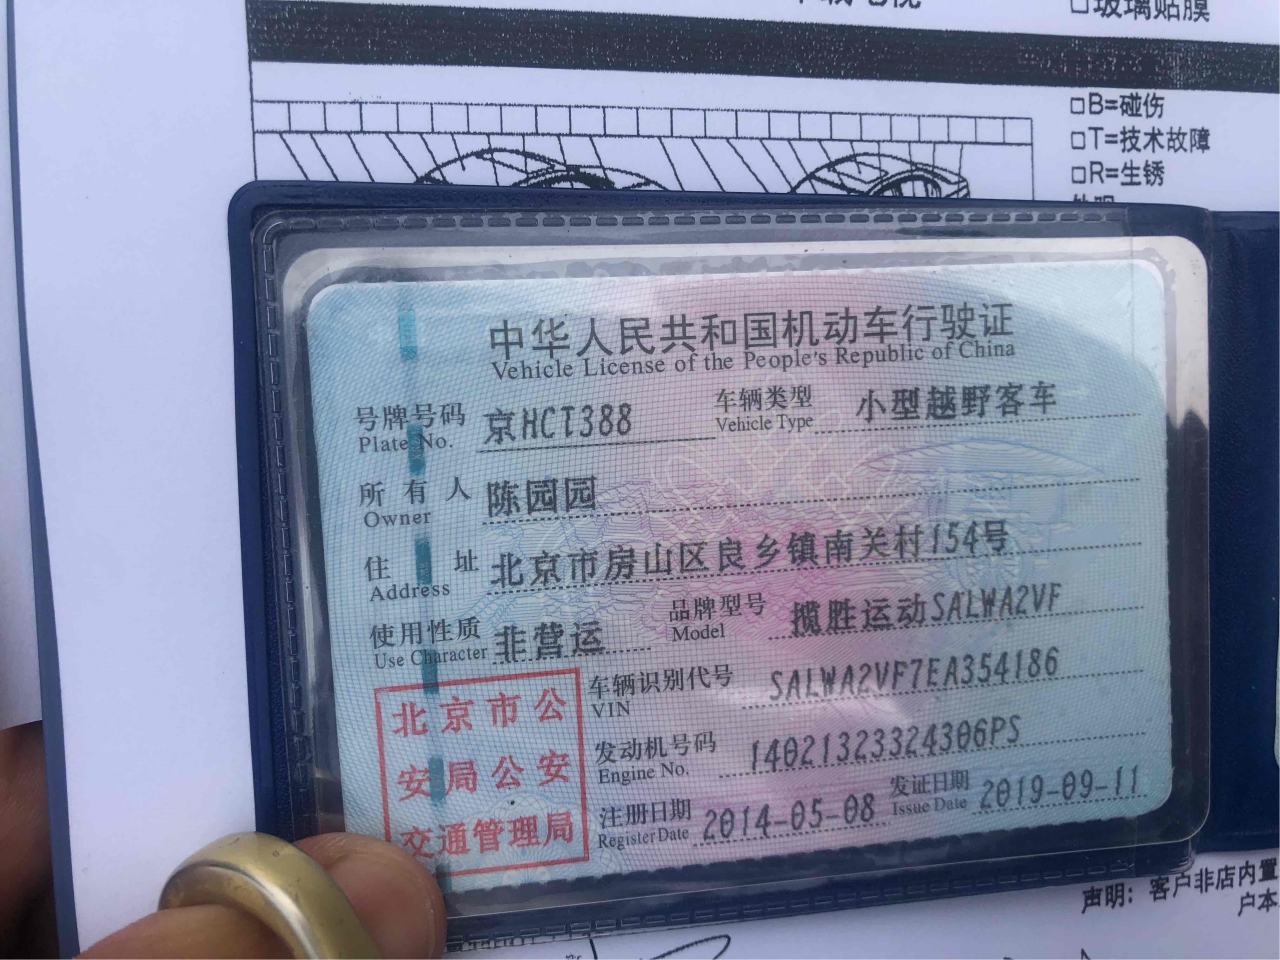 □玻璃贴膜
□B=碰伤
□T=技术故障
□R=生锈
中华人民共和国机动车行驶证
Vehicle License of the People's Republic of China
号牌号码 京HCT388 车辆类型 小型越野客车
Plate No. Vehicle Type
所有人 陈园园
Owner
住址 北京市房山区良乡镇南关村154号
Address
使用性质 非营运 品牌型号 揽胜运动SALWA2VF
Use Character Model
北京市公
安局公安
交通管理局
车辆识别代号 SALWA2VF7EA354186
VIN
发动机号码 14021323324306PS
Engine No.
注册日期 2014-05-08 发证日期 2019-09-11
Register Date Issue Date
声明：客户非店内置
户本